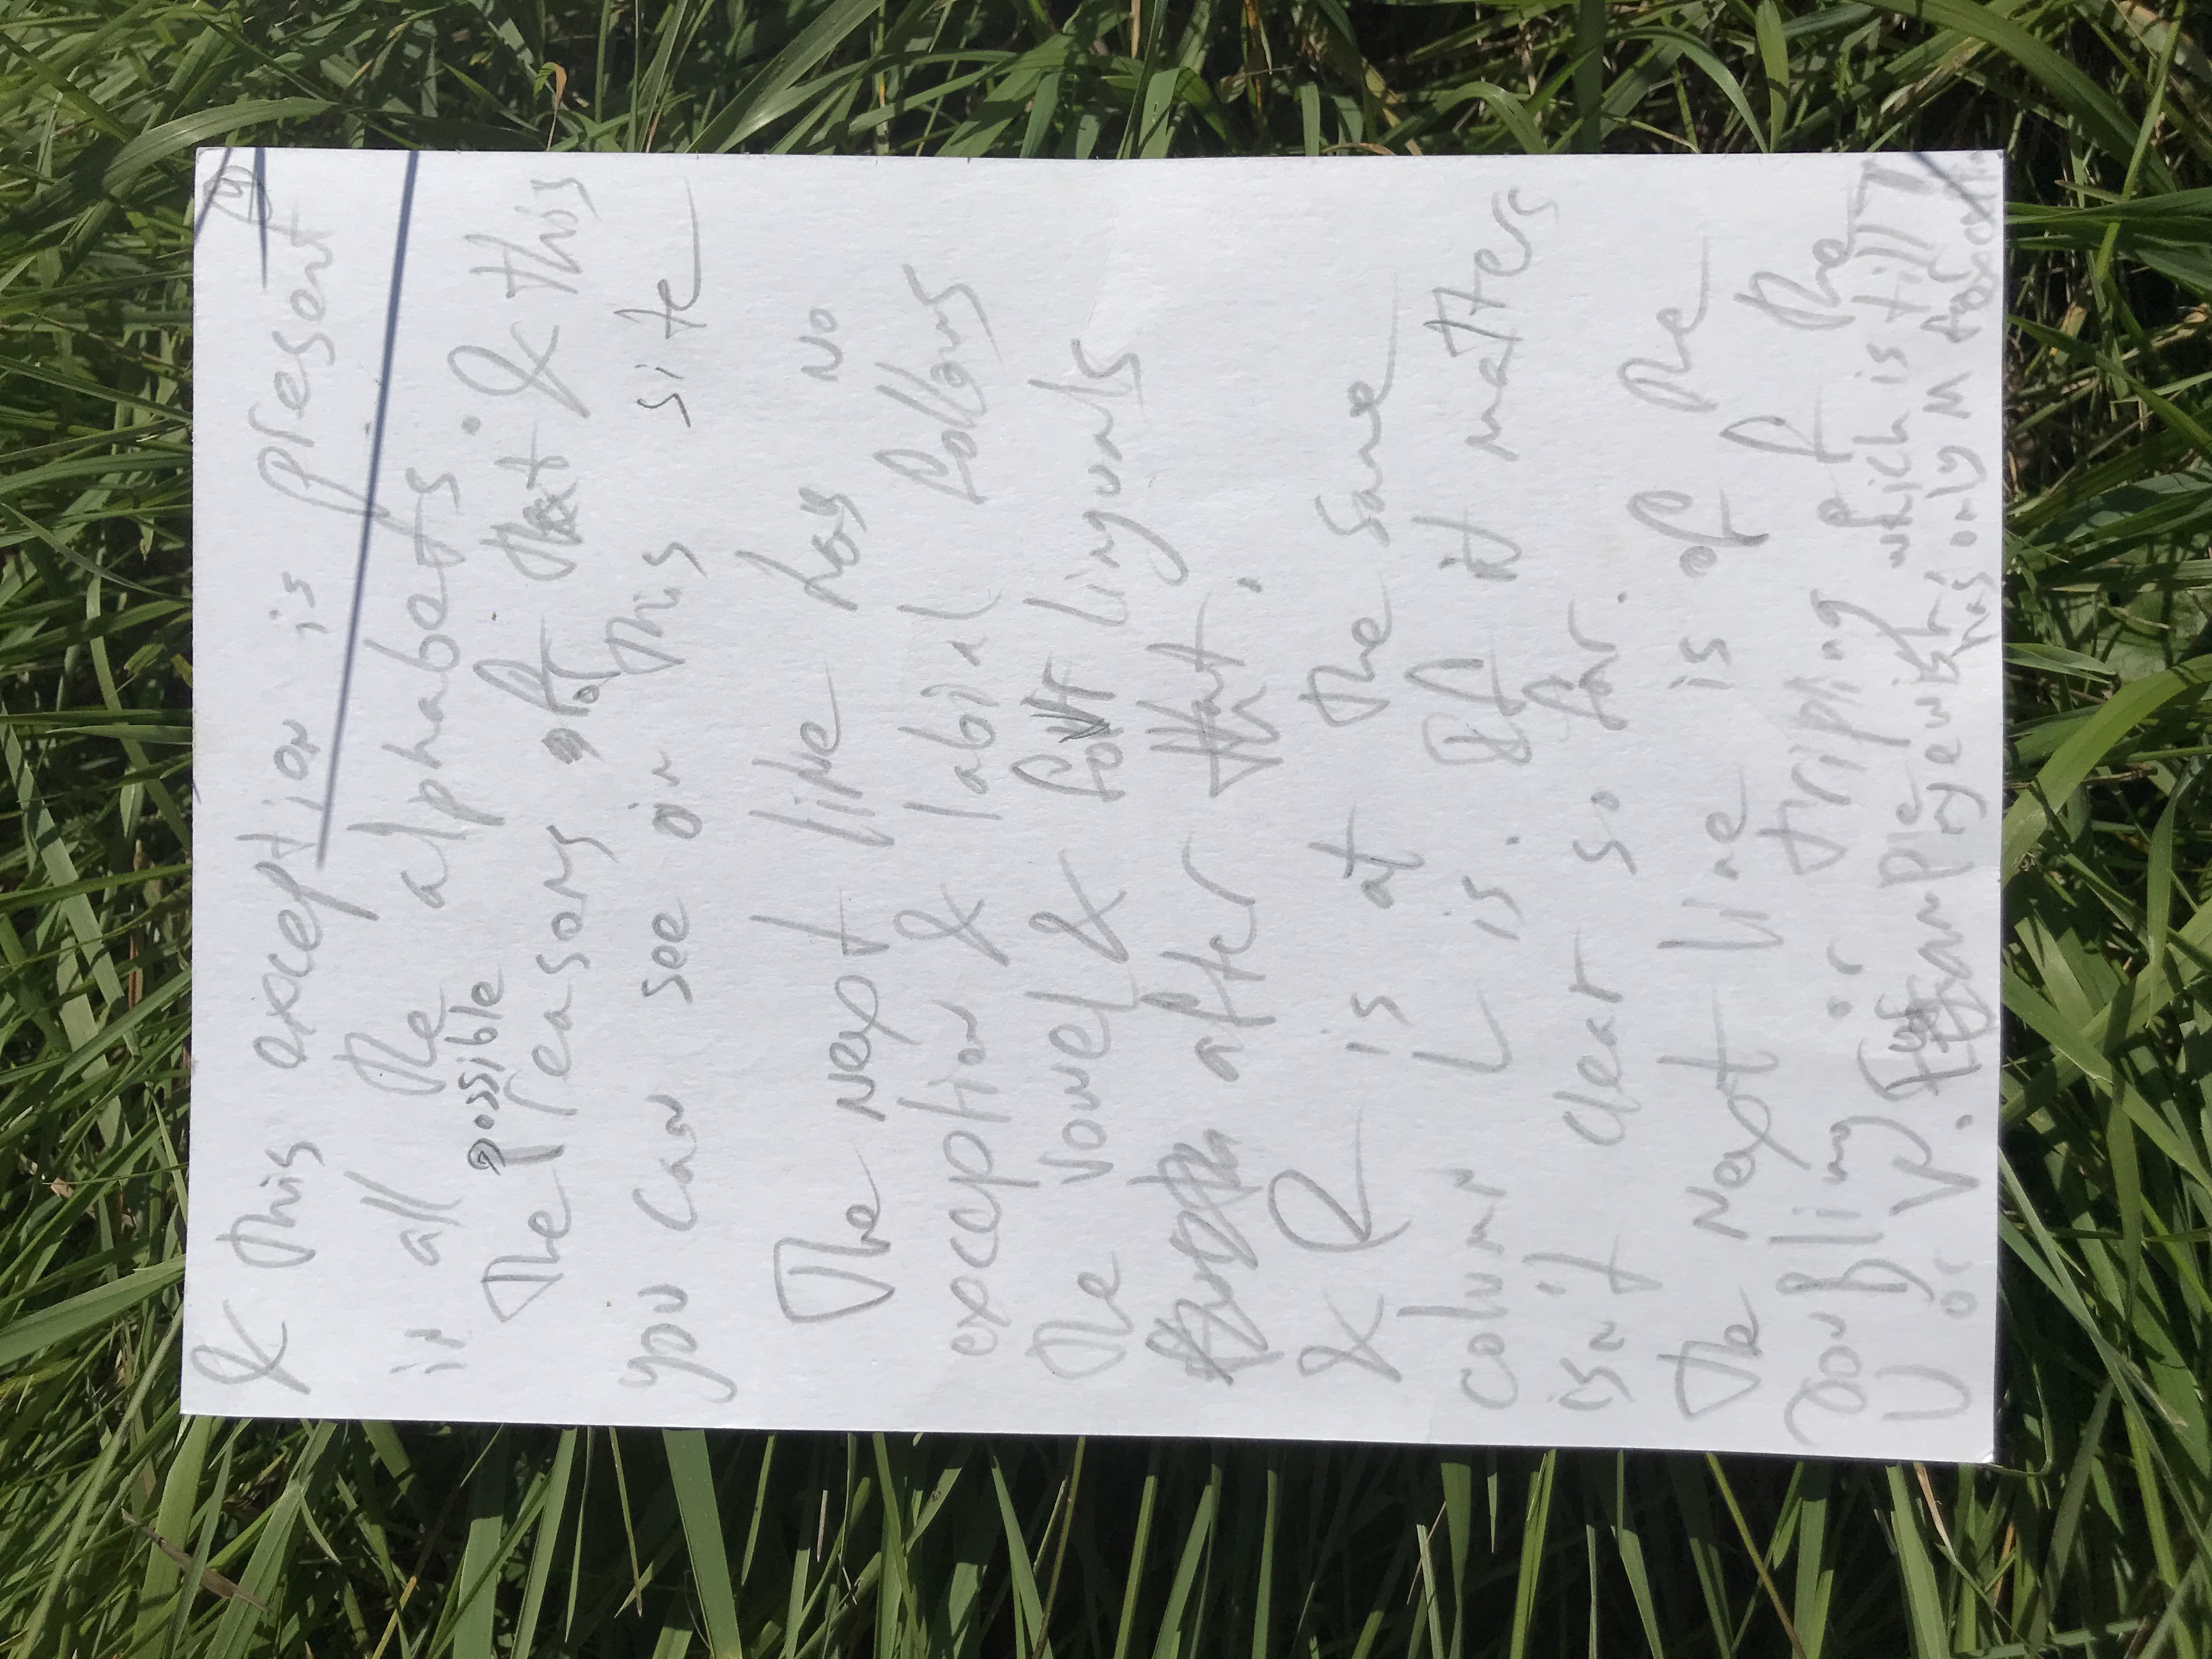 4
& this exception is present
in all the alphabets.
possible
The reasons for that & this
you can see on this site
The next line has no
exception & labial follows
the vowel & four linguals
after that.
& R is at the same
column L is. If it matters
isn't clear so far.
The next line is of the
doubling or tripling of the
U or V. which is till
has only M for